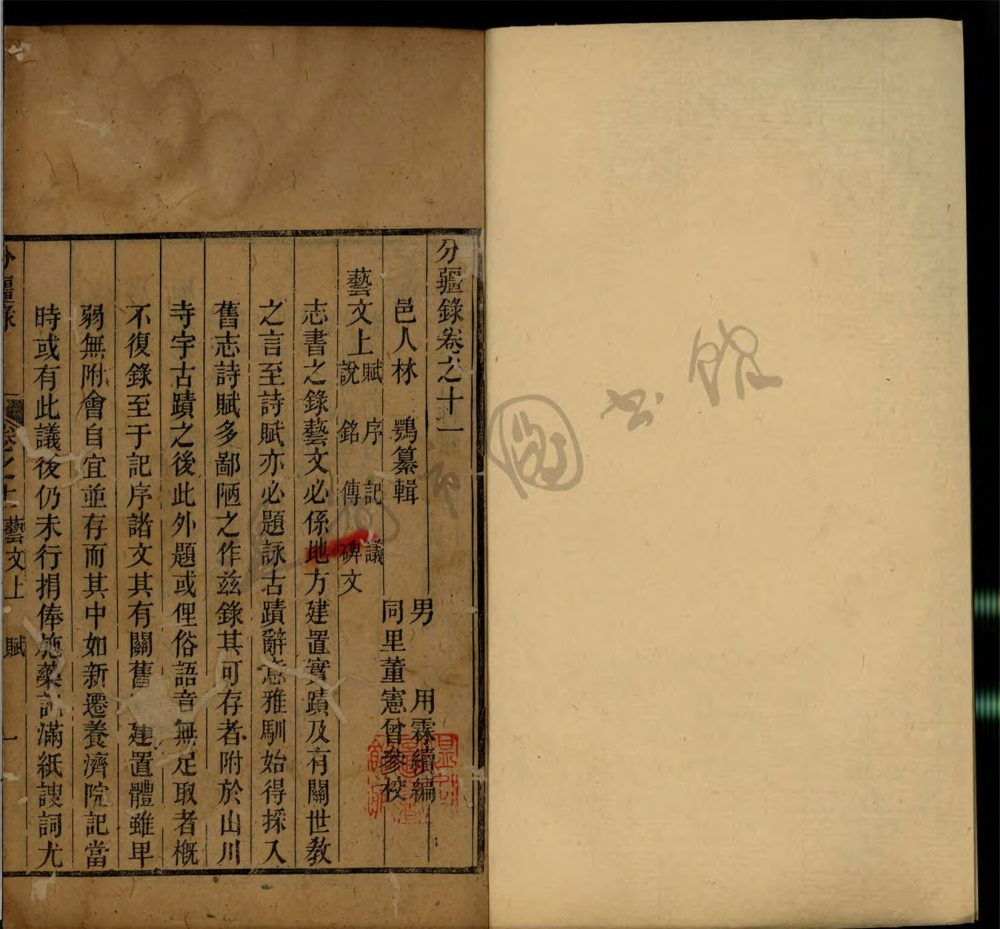 分疆錄卷之十一
邑人林鶚纂輯 男用霖續編
同里董憲曾參校
藝文上 賦序記議
說銘傳碑文
志書之錄藝文必係地方建置實蹟及有關世教
之言至詩賦亦必題詠古蹟辭意雅馴始得採入
舊志詩賦多鄙陋之作茲錄其可存者附於山川
寺宇古蹟之後此外題或俚俗語音無足取者概
不復錄至于記序諸文其有關舊建置體雖卑
弱無附會自宜並存而其中如新遷養濟院記當
時或有此議後仍未行捐俸施藥記滿紙諛詞尤
分疆錄 卷之十一 藝文上 賦 一
圖書館